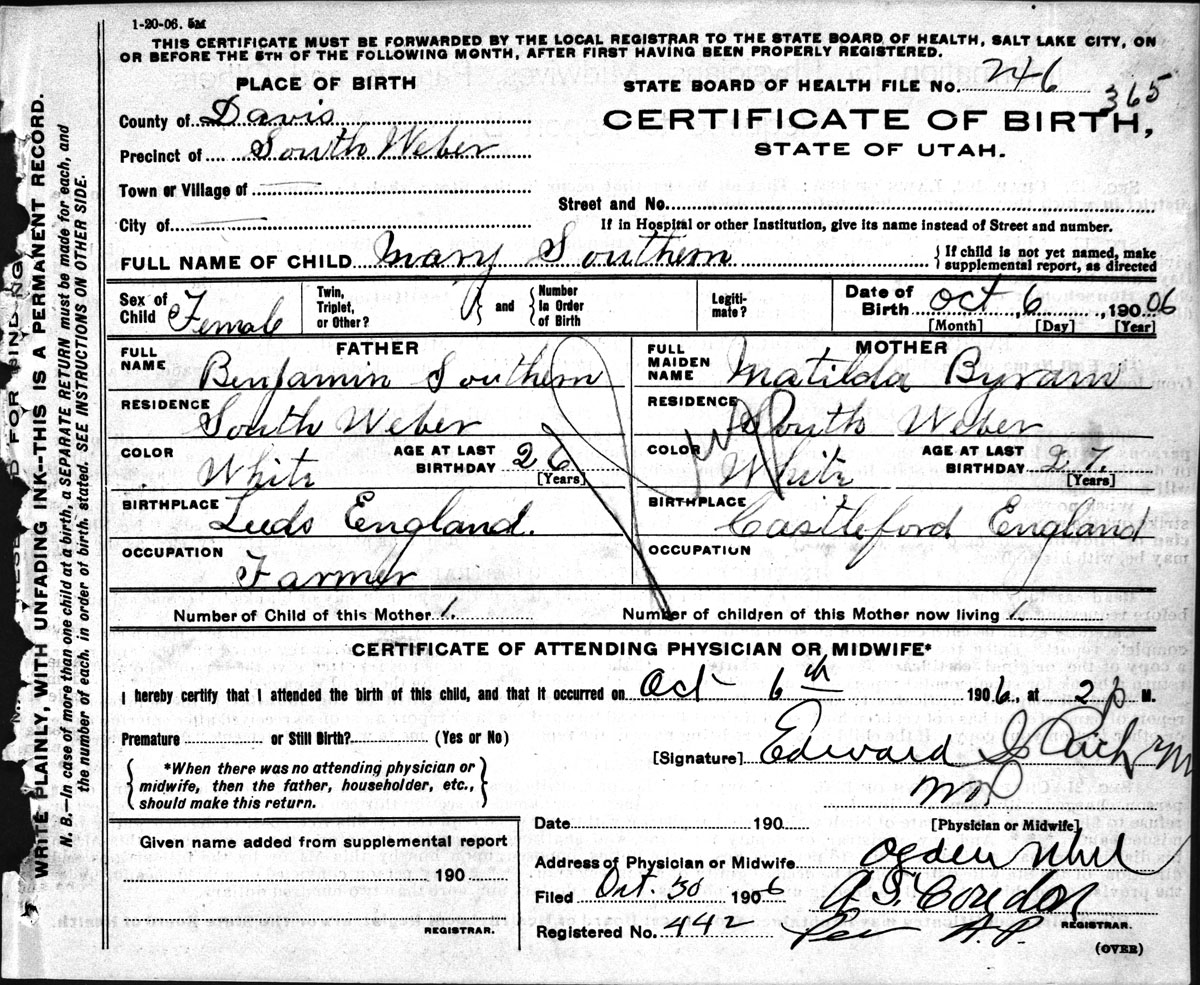 1-20-06. 5M
THIS CERTIFICATE MUST BE FORWARDED BY THE LOCAL REGISTRAR TO THE STATE BOARD OF HEALTH, SALT LAKE CITY, ON
OR BEFORE THE 5TH OF THE FOLLOWING MONTH, AFTER FIRST HAVING BEEN PROPERLY REGISTERED.
PLACE OF BIRTH
STATE BOARD OF HEALTH FILE NO. 246
365
County of Davis
CERTIFICATE OF BIRTH,
Precinct of South Weber
STATE OF UTAH.
Town or Village of
Street and No.
City of
If in Hospital or other Institution, give its name instead of Street and number.
FULL NAME OF CHILD Mary Southern { If child is not yet named, make supplemental report, as directed
Sex of Child Female
Twin, Triplet, or Other? } and { Number in Order of Birth
Legitimate?
Date of Birth Oct 6, 190 06
[Month] [Day] [Year]
FATHER
MOTHER
FULL NAME Benjamin Southern
FULL MAIDEN NAME Matilda Byram
RESIDENCE South Weber
RESIDENCE South Weber
COLOR White AGE AT LAST BIRTHDAY 26 [Years]
COLOR White AGE AT LAST BIRTHDAY 27. [Years]
BIRTHPLACE Leeds England.
BIRTHPLACE Castleford England
OCCUPATION Farmer
OCCUPATION
Number of Child of this Mother 1.
Number of children of this Mother now living 1.
CERTIFICATE OF ATTENDING PHYSICIAN OR MIDWIFE*
I hereby certify that I attended the birth of this child, and that it occurred on Oct 6th 1906., at 2 p M.
Premature or Still Birth? (Yes or No)
[Signature] Edward I
*When there was no attending physician or
midwife, then the father, householder, etc.,
should make this return.
Date 190
[Physician or Midwife]
Given name added from supplemental report
190
REGISTRAR.
Address of Physician or Midwife Ogden Utah
Filed Oct. 30 1906
REGISTRAR.
Registered No. 442 Per A.P.
(OVER)
WRITE PLAINLY, WITH UNFADING INK--THIS IS A PERMANENT RECORD.
N. B.--In case of more than one child at a birth, a SEPARATE RETURN must be made for each, and
the number of each, in order of birth, stated. SEE INSTRUCTIONS ON OTHER SIDE.